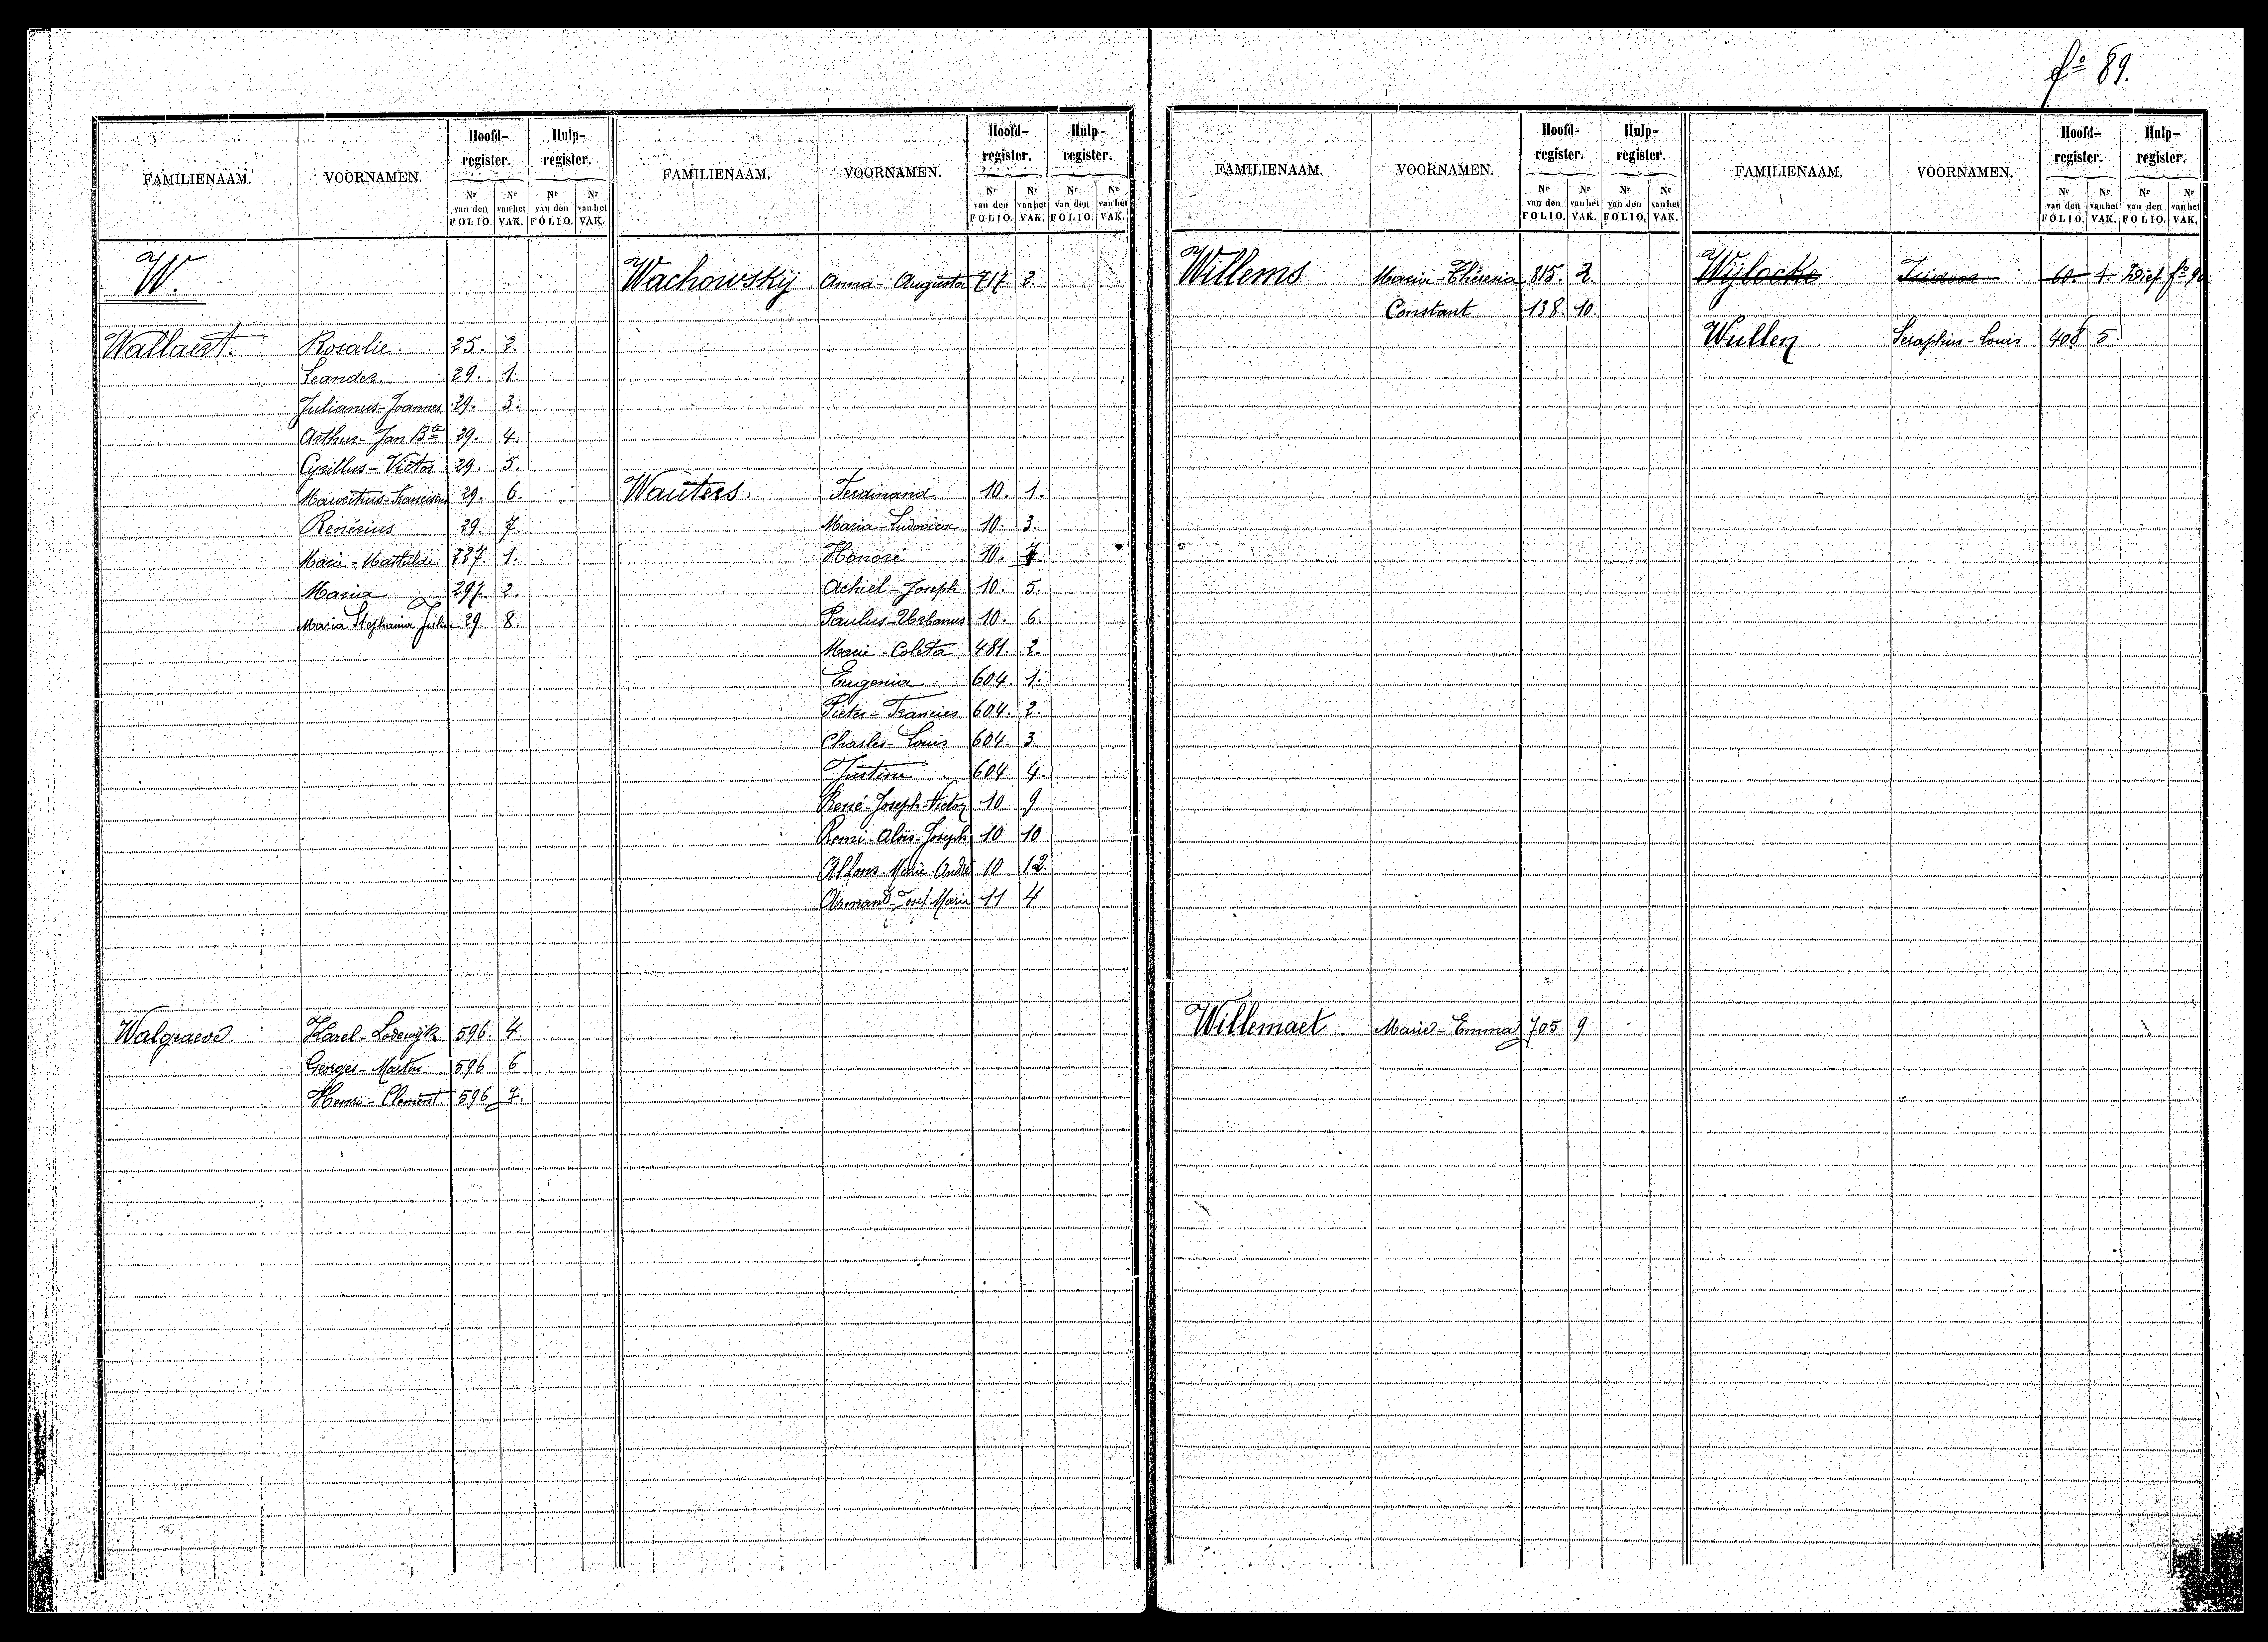 fº 89.
FAMILIENAAM. VOORNAMEN. Hoofd-register. Hulp-register.
Nr van den FOLIO. Nr van het VAK. Nr van den FOLIO. Nr van het VAK.
W.
Wallaert. Rosalie. 25. 2.
Leander. 29. 1.
Julianus-Joannes 29. 3.
Arthur-Jan Bte 29. 4.
Cyrillus-Victor 29. 5.
Mauritius-Franciscus 29. 6.
Renérius 29. 7.
Marie-Mathilde 227. 1.
Maria 297. 2.
Maria Stephania Julia 29 8.
Walgraeve. Karel-Lodewijk 596. 4.
Georges-Martin 596 6
Henri-Clement. 596 7.
FAMILIENAAM. VOORNAMEN. Hoofd-register. Hulp-register.
Nr van den FOLIO. Nr van het VAK. Nr van den FOLIO. Nr van het VAK.
Wachowskij Anna-Augusta 717 2.
Wauters. Ferdinand 10. 1.
Maria-Ludovica 10. 3.
Honoré 10.
Achiel-Joseph 10. 5.
Paulus-Urbanus 10. 6.
Marie-Coleta 481. 2.
Eugenia 604. 1.
Pieter-Francies 604. 2.
Charles-Louis 604. 3.
Justine 604 4.
René-Joseph-Victor 10 9
Remi-Aloïs-Joseph 10 10
Alfons-Marie-André 10 12.
Armand-Josef-Marie 11 4
FAMILIENAAM. VOORNAMEN. Hoofd-register. Hulp-register.
Nr van den FOLIO. Nr van het VAK. Nr van den FOLIO. Nr van het VAK.
Willems Maria-Thèresia 815. 2.
Constant 138. 10.
Willemaet Marie-Emma 705 9
FAMILIENAAM. VOORNAMEN. Hoofd-register. Hulp-register.
Nr van den FOLIO. Nr van het VAK. Nr van den FOLIO. Nr van het VAK.
Wijlocke Isidoor 60. 1. Zie fº 90
Wullen Seraphin-Louis 408 5.